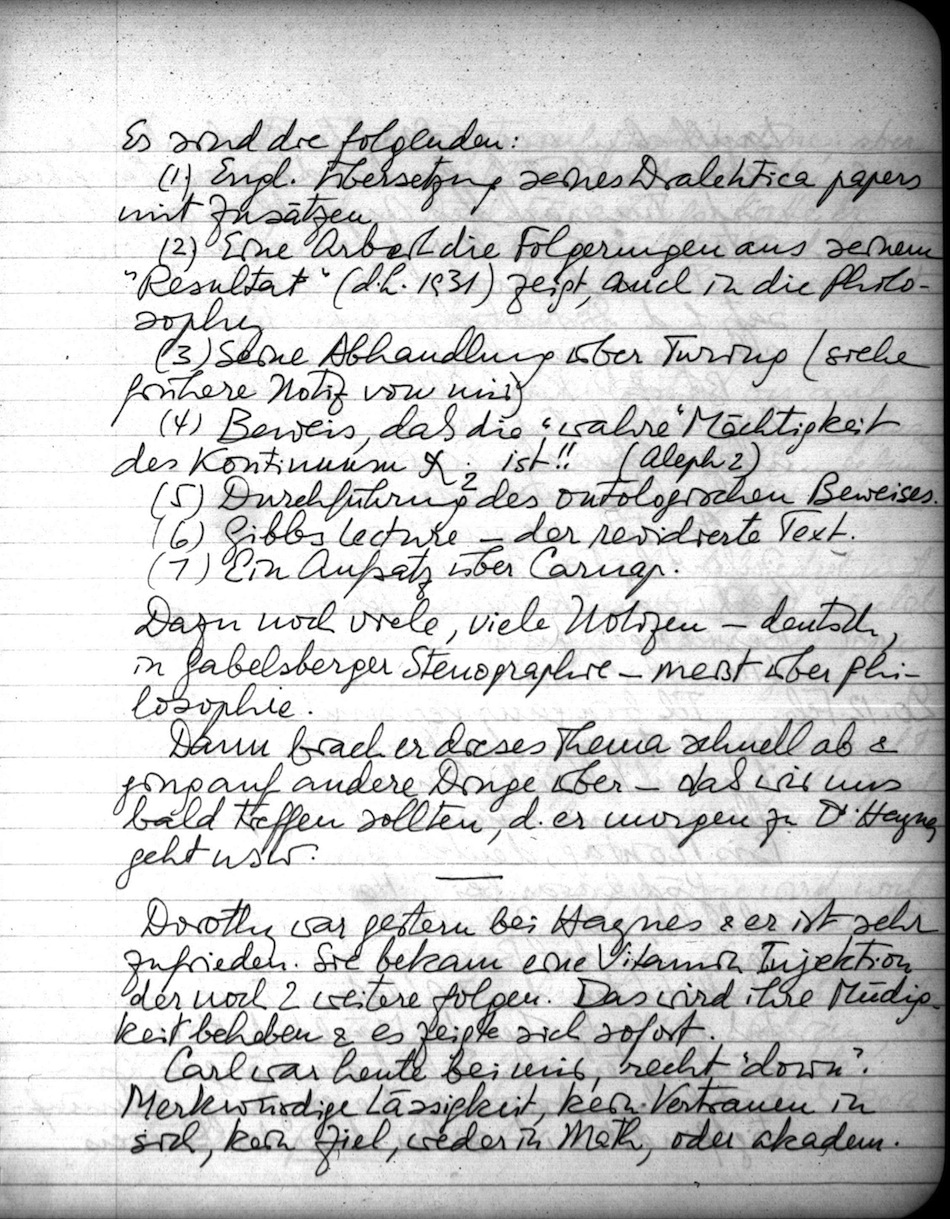 Es sind die folgenden:
(1) Engl. Übersetzung seines Dialektica papers
mit Zusätzen
(2) Eine Arbeit die Folgerungen aus seinem
"Resultat" (d.h. 1931) zeigt, auch in die Philo-
sophie
(3) Seine Abhandlung über Turing (siehe
frühere Notiz von mir)
(4) Beweis, daß die "wahre" Mächtigkeit
des Kontinuum ℵ₂ ist!! (Aleph 2)
(5) Durchführung des ontologischen Beweises.
(6) Gibbs Lecture – der revidierte Text.
(7) Ein Aufsatz über Carnap.
Dazu noch viele, viele Notizen – deutsch,
in Gabelsberger Stenographie – meist über Phi-
losophie.
Dann brach er dieses Thema schnell ab &
ging auf andere Dinge über – daß wir uns
bald treffen sollten, d. er morgen zu Dr Haynes
geht usw.
Dorothy war gestern bei Haynes & er ist sehr
zufrieden. Sie bekam eine Vitamin Injektion
der noch 2 weitere folgen. Das wird ihre Müdig-
keit beheben & es zeigte sich sofort.
Carl war heute bei mir, recht "down".
Merkwürdige Lässigkeit, kein Vertrauen in
sich, kein Ziel, weder in Math, oder akadem.